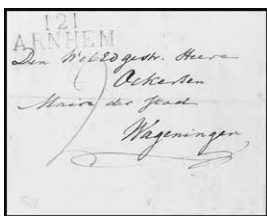 121
ARNHEM
Den WelEdgestr. Heere
Ockersen
Maire der Stad
Wageningen